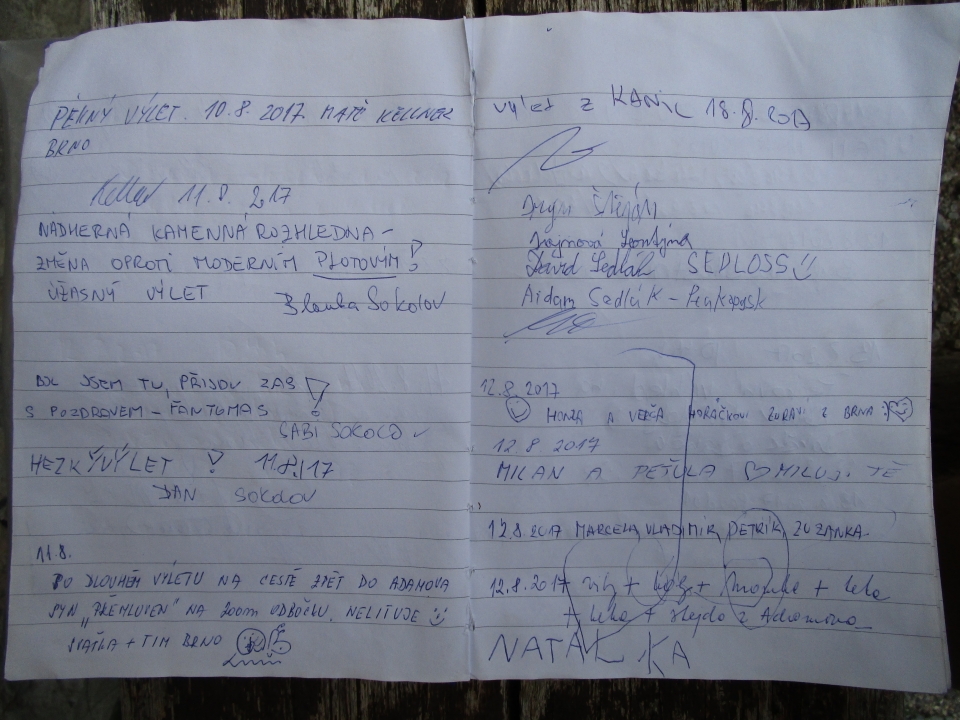 PĚKNÝ VÝLET. 10.8. 2017 MATĚ KELLNER
BRNO
11.8. 2017
NÁDHERNÁ KAMENNÁ ROZHLEDNA –
ZMĚNA OPROTI MODERNÍM PLOTOVÝM !
ÚŽASNÝ VÝLET
Blanka Sokolov
BYL JSEM TU, PŘIJDU ZAS !
S POZDRAVEM – FANTOMAS
GABI SOKOLOV
HEZKÝ VÝLET ! 11.8.17
DAN SOKOLOV
11.8.
PO DLOUHÉM VÝLETU NA CESTĚ ZPĚT DO ADAMOVA
SYN „PŘEMLUVEN" NA 200m ODBOČKU. NELITUJE
SVAŤKA + TIM BRNO
Výlet z KANIC 18.8.2017
Leontýna
David Sedlák SEDLOSS
Adam Sedlák –
12.8.2017
HONZA A VERČA HORÁČKOVI ZDRAVÍ Z BRNA :)
12.8 2017
MILAN A PEŤULA ♡ MILUJI TĚ
12.8.2017 MARCELA, VLADIMÍR, PETRÍK, ZUZANKA
12.8.2017 + + + Leka
+ Leka + z Adamova
NATÁLKA